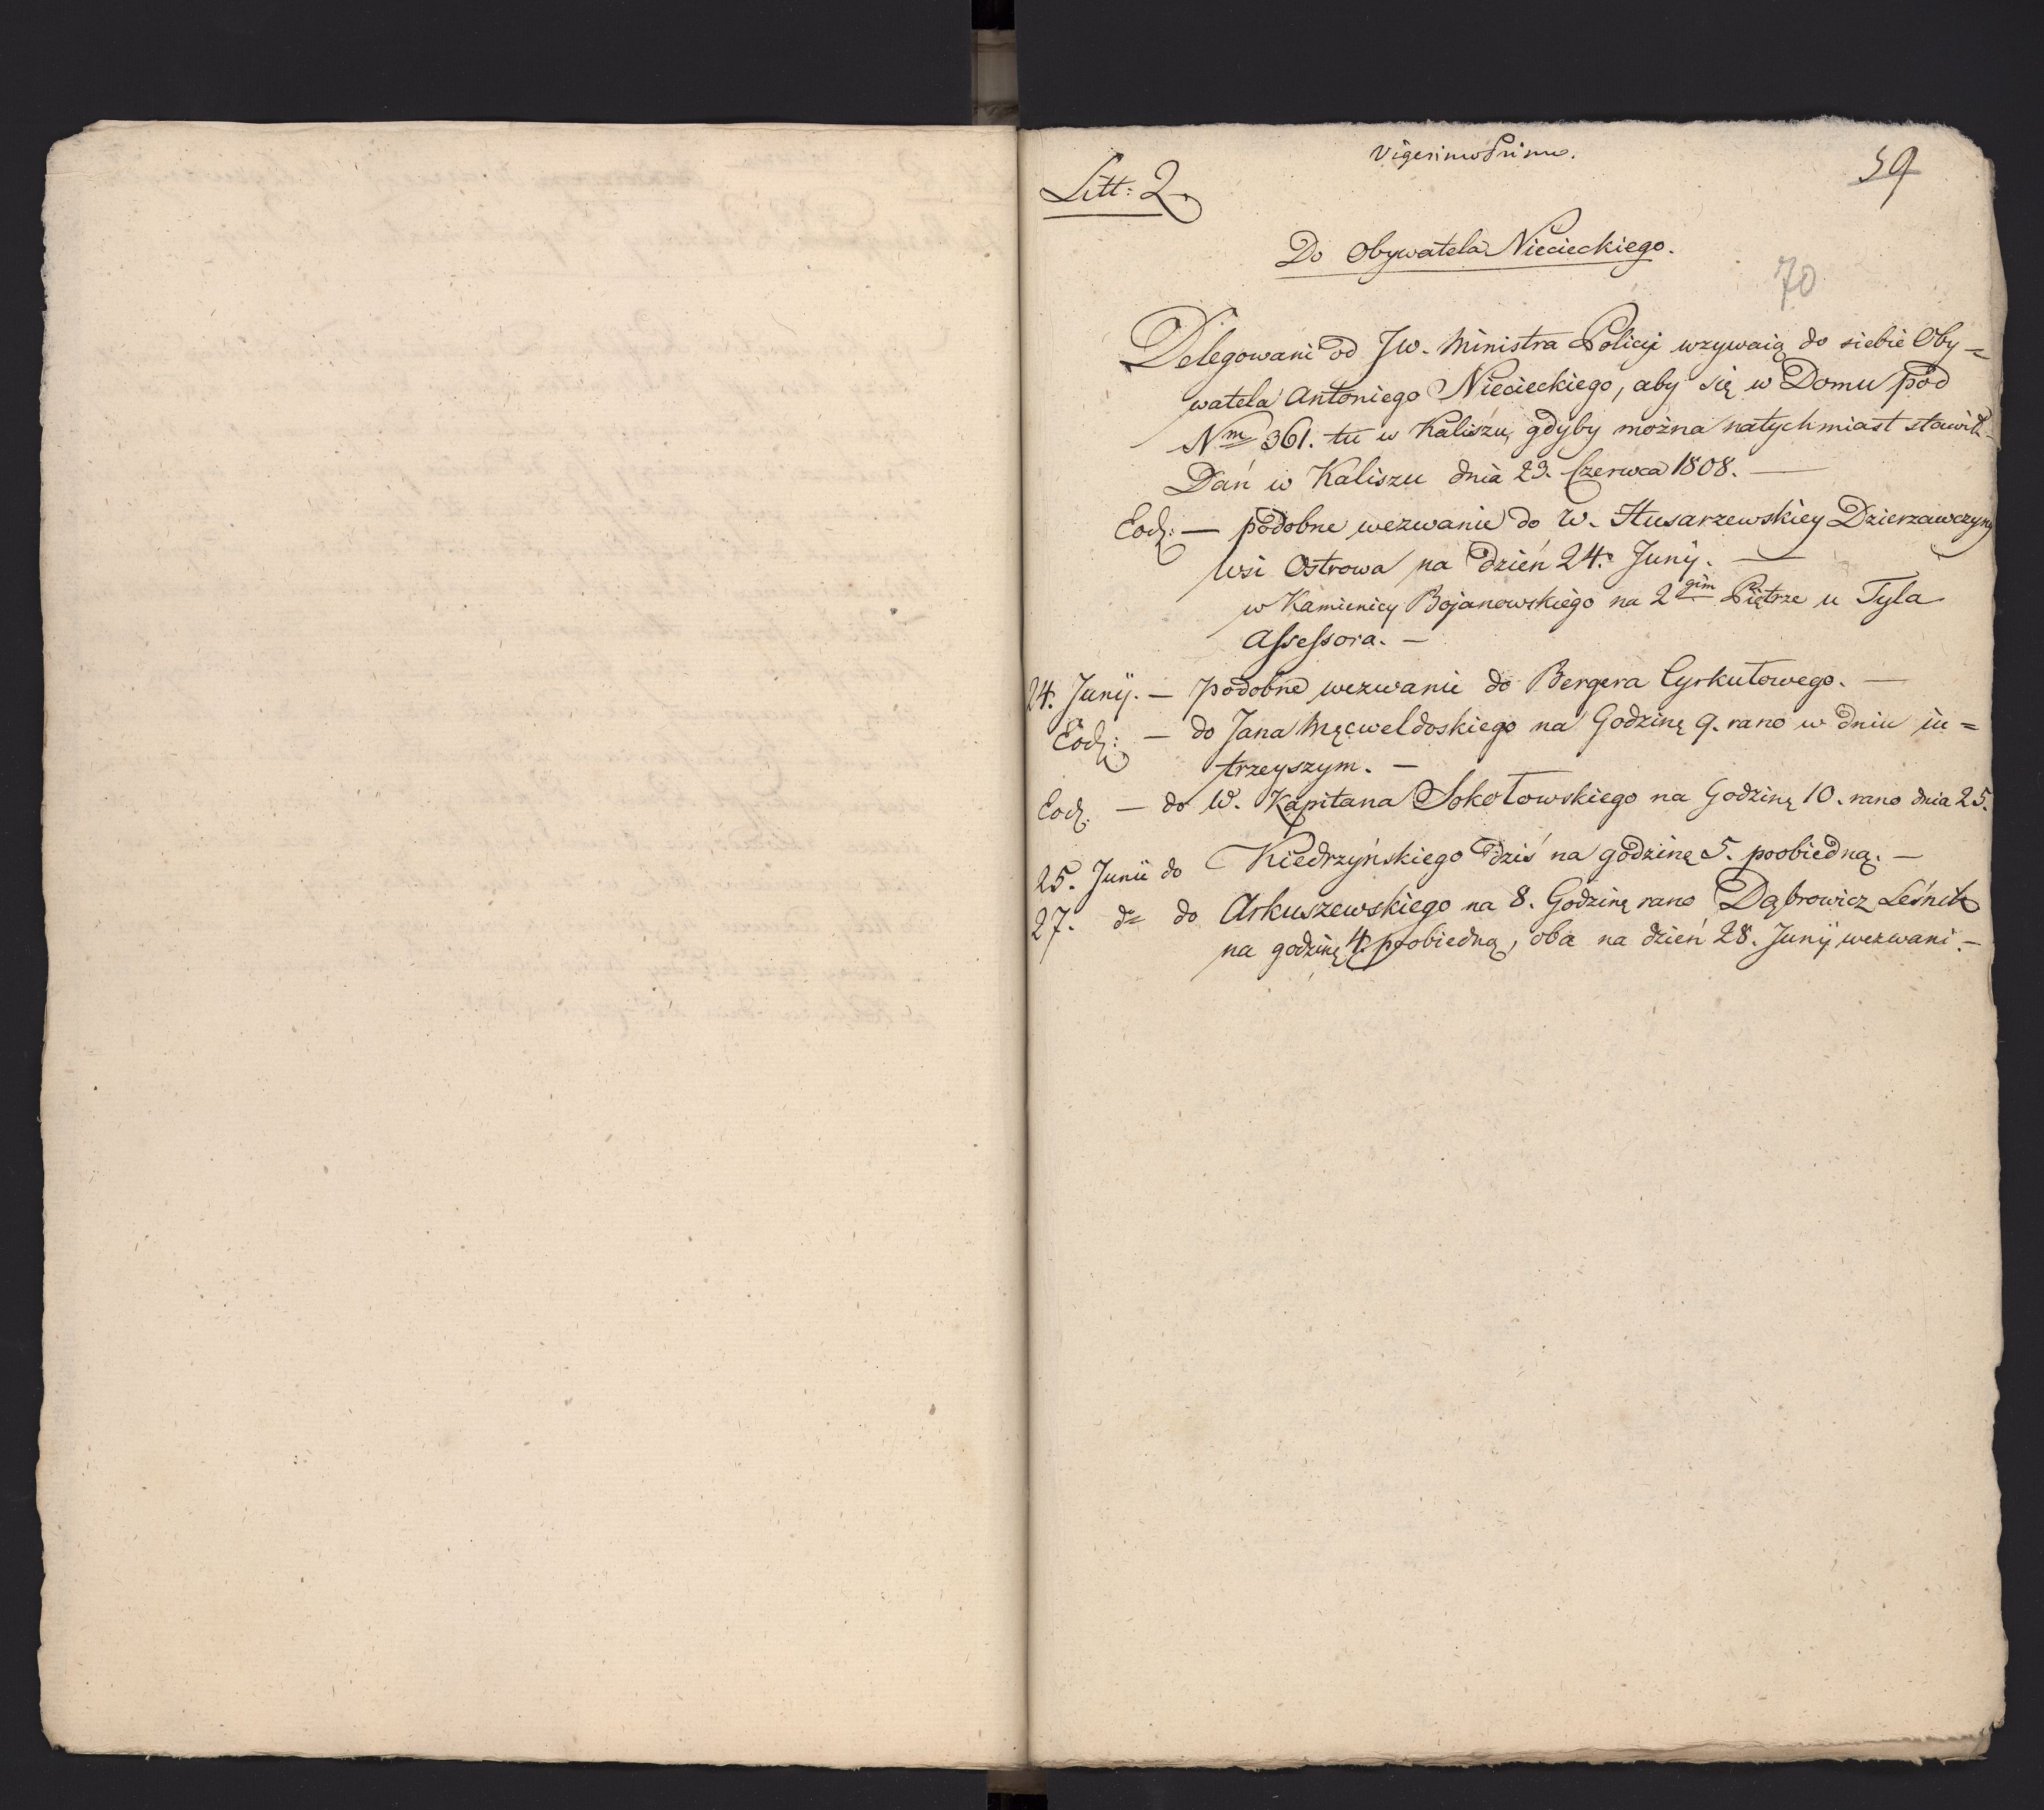 Vigesimo Primo.
59
Litt: 2.
Do Obywatela Niecieckiego.
70
Delegowani od JW. Ministra Policyi wzywaią do siebie Oby=
watela Antoniego Niecieckiego, aby się w Domu pod
Nm 361. tu w Kaliszu, gdyby można natychmiast stawił.
Dań w Kaliszu dnia 23. Czerwca 1808. —
Eod: — podobne wezwanie do W. Husarzewskiey Dzierzawczyny
wsi Ostrowa na dzień 24. Junij. —
w Kamienicy Bojanowskiego na 2gim Piętrze u Tyla
Assessora. —
24. Junij. — podobne wezwanie do Bergera Cyrkułowego. —
Eod: — do Jana Męcweldoskiego na Godzinę 9. rano w dniu iu=
trzeyszym. —
Eod. — do W. Kapitana Sokołowskiego na Godzinę 10. rano dnia 25.
25. Junii do Kiedrzyńskiego dziś na godzinę 5. poobiedną. —
27. do do Arkuszewskiego na 8. Godzinę rano Dąbrowicz Leśnik
na godzinę 4. poobiedną, oba na dzień 28. Junij wezwani. —